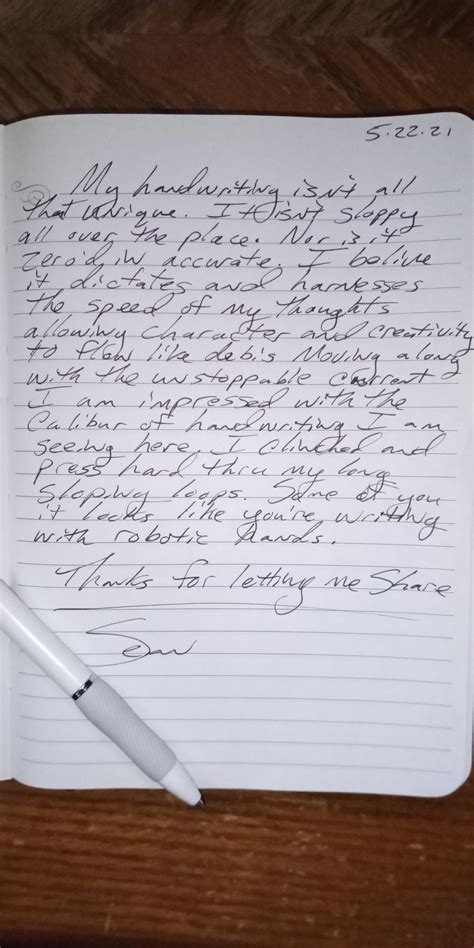 5.22.21
My handwriting isn't all
that unique. It isn't sloppy
all over the place. Nor is it
zero'd in accurate. I belive
it dictates and harnesses
the speed of my thoughts
allowing character and creativity
to flow like debis moving along
with the unstoppable current
I am impressed with the
Calibur of handwriting I am
seeing here. I clinched and
press hard thru my long
sloping loops. Some of you
it looks like you're writing
with robotic hands.
Thanks for letting me Share
Sean